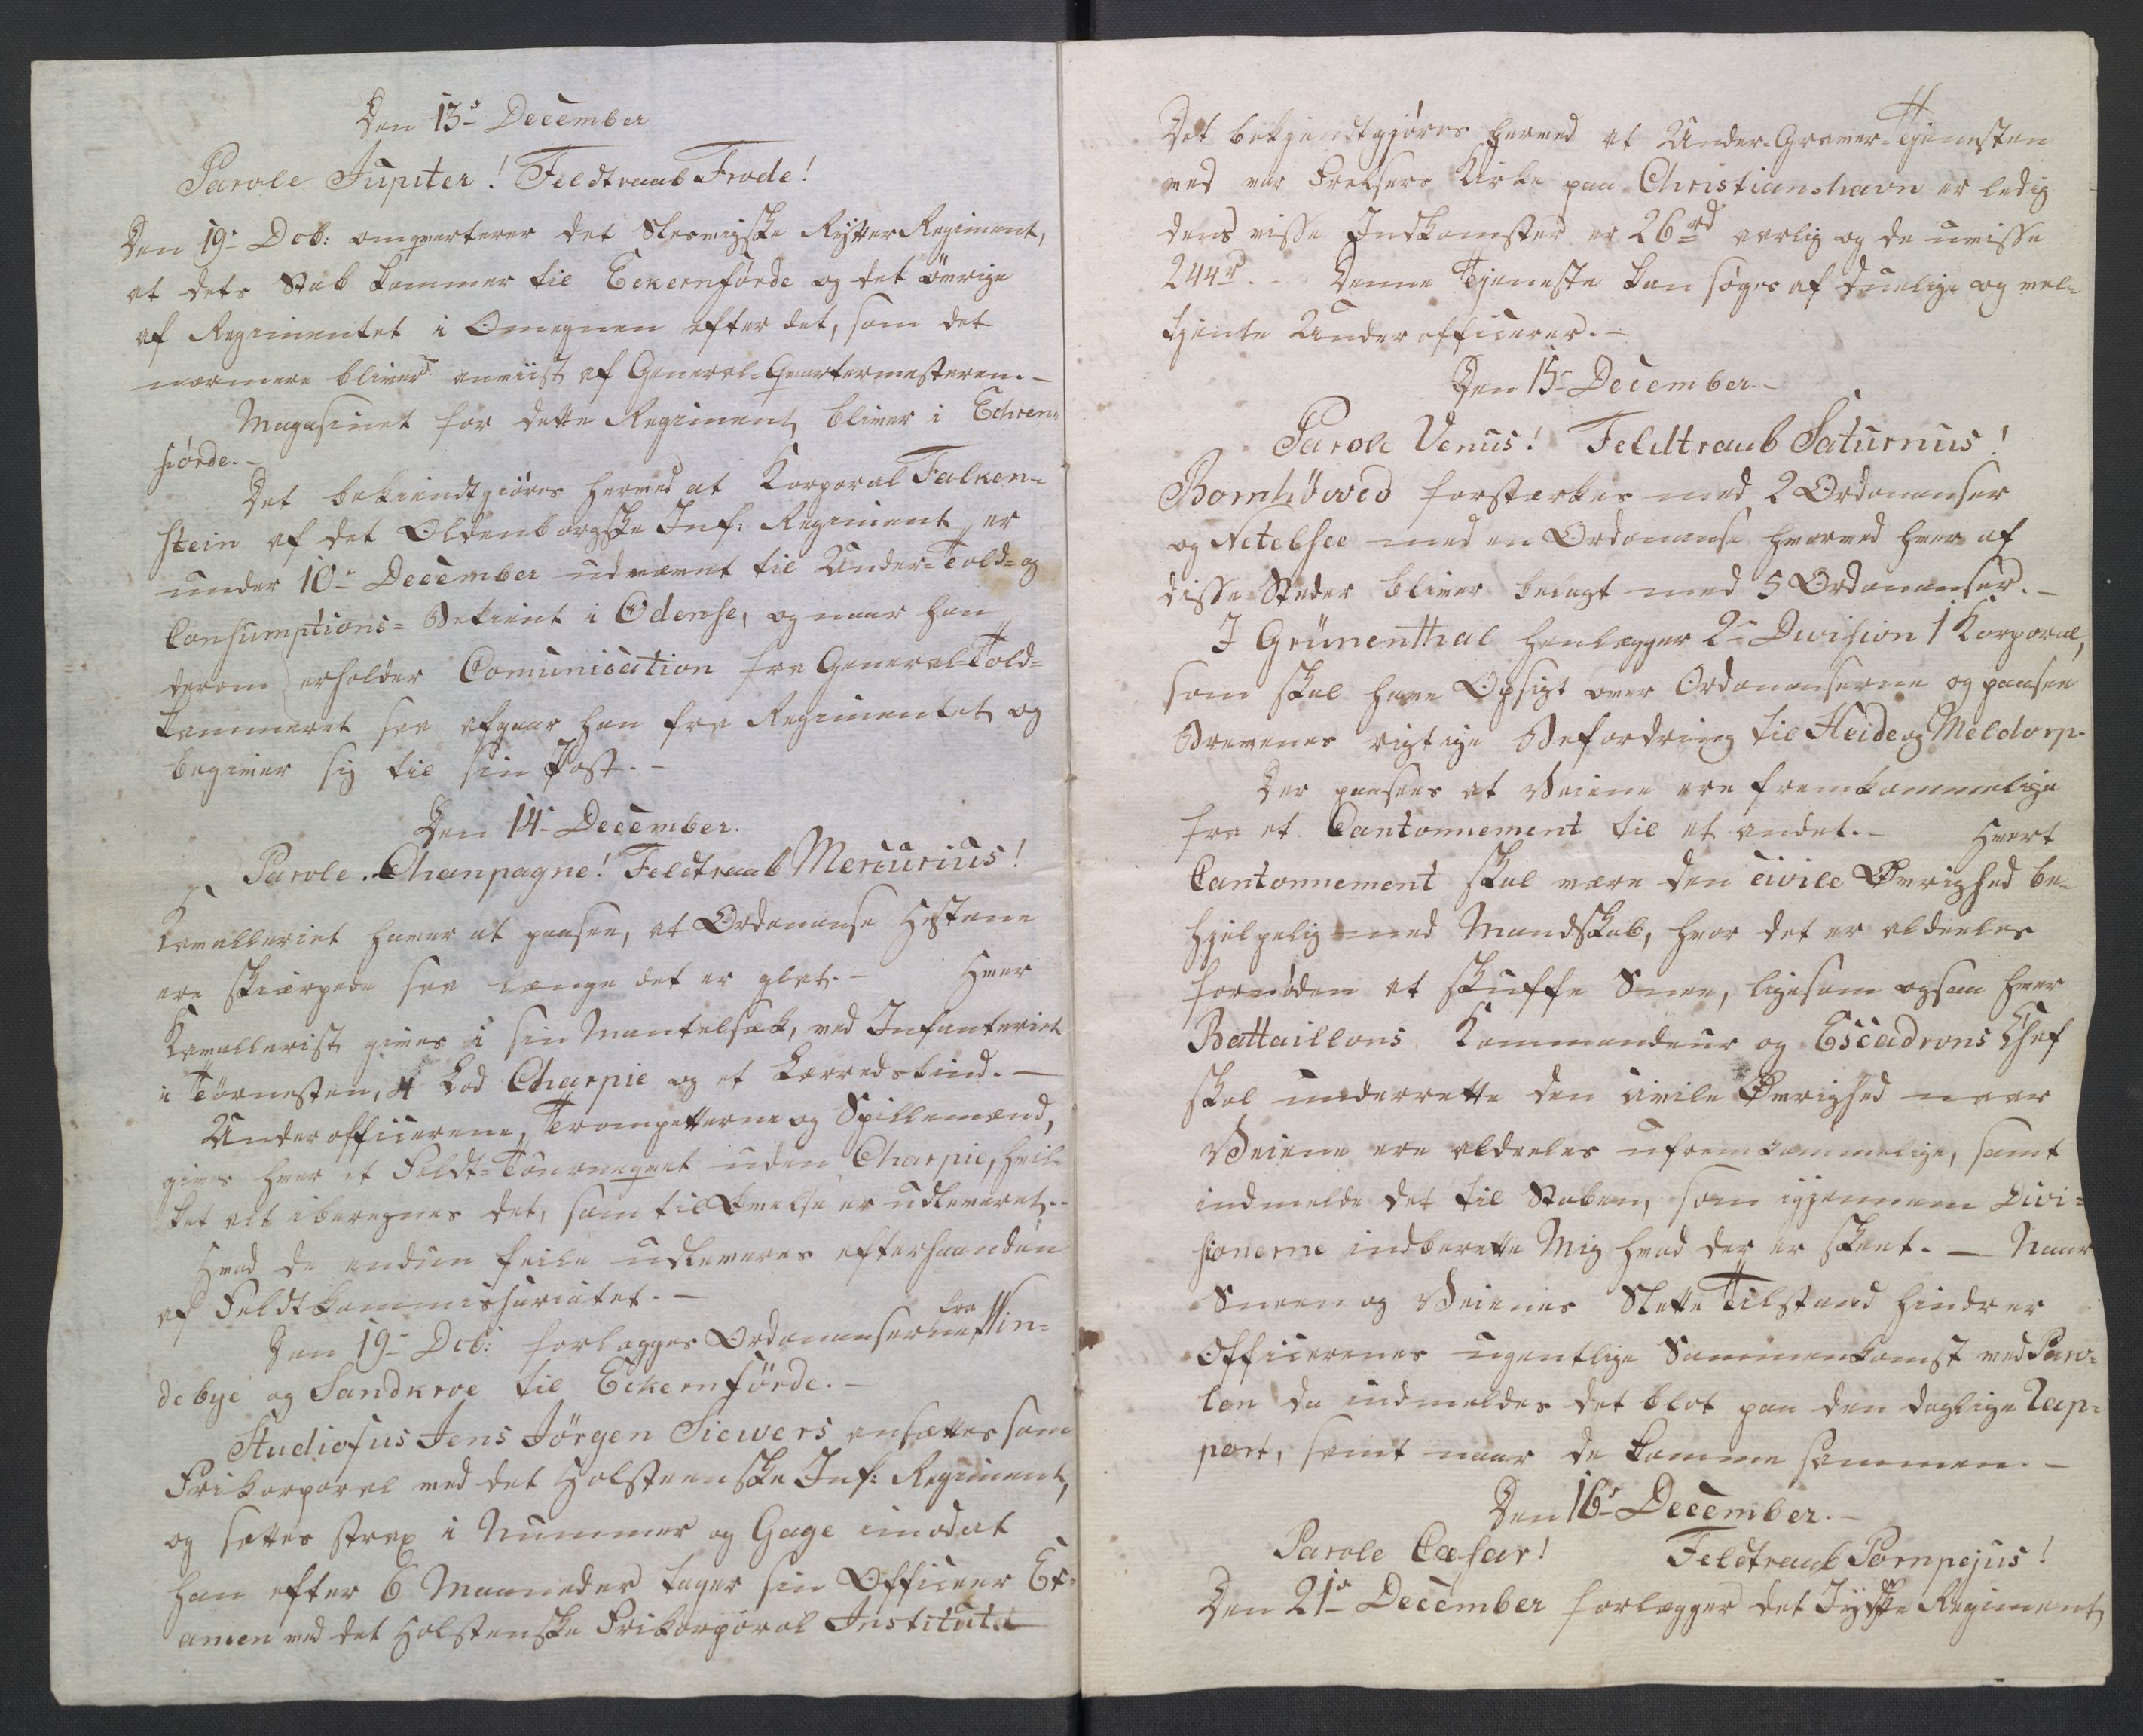 Den 13de December
Parole Jupiter! Feldtraab Frode!
Den 19de Dcb: omqvarterer det Slesvigske Rytter Regiment,
at dets Stab kommer til Eckernförde og det övrige
af Regimentet i Omegnen efter det, som det
nærmere bliver anviist af General-Qvartermesteren.-
Magasinet for dette Regiment bliver i Echren-
förde.-
Det bekiendtgiöres herved at Korporal Falken-
stein af det Oldenborgske Inf: Regiment er
under 10de December udnævnt til Under-Told- og
Consumptions-Betient i Odense, og naar han
derom erholder Comunication fra General-Told-
kammeret saa afgaar han fra Regimentet og
begiver sig til sin Post.-
Den 14de December.
Parole. Chanpagne! Feldtraab Mercurius!
Kavalleriet haver at paasee, at Ordonanse Hestene
ere skiærpede saa længe det er glat.- Hver
Kavallerist gives i sin Mantelsæk, ved Infanteriet
i Törnesteren, 4 Lod Charpie og et Lærredsbind.-
Underofficererne, Trompetterne og Spillemænd,
gives hver et Feldt-Tourneqvet uden Charpie, hvil-
ket alt iberegnes det, som til Övelse er udleveret.-
Hvad de endnu feile udleveres efterhaanden
af Feldtkommissariatet.-
Den 19de Dcb: forlægges Ordonanserne fra Win-
debye og Sandkroe til Eckernförde.-
Studiosus Jens Jörgen Siewers ansættes som
Frikorporal ved det Holsteenske Inf: Regiment,
og settes strax i Nummer og Gage imod at
han efter 6 Maaneder tager sin Officeer Ex-
amen ved det Holstenske Frikorporal Institut
Det bekjendtgjøres herved at Under-Graver-Tjenesten
ved vor Frelsers Kirke paa Christianshavn er ledig
dens visse Indkomster er 26rd aarlig og de uvisse
244rd.- Denne Tjeneste kan søges af duelige og vel-
tjente Underofficerer.-
Den 15de December.-
Parole Venus! Feldtraab Saturnus!
Bornhöved forstærkes med 2 Ordonanser
og Netelsee med en Ordonanse hvorved hver af
disse Steder bliver belagt med 5 Ordonanser.-
I Grünenthal henlægger 2de Division 1 Korporal,
som skal have Opsigt over Ordonanserne og paasee
Brevenes rigtige Befordring til Heide og Meldorp.
Der paasees at Veiene ere fremkommelige
fra et Cantonnement til et andet.- Hvert
Cantonnement skal være den civile Øvrighed be-
hjelpelig med Mandskab, hvor det er aldeeles
fornöden at skuffe Snee, ligesom ogsaa hver
Battaillons Kommandeur og Escadrons Chef
skal underrette den civile Øvrighed naar
Veiene ere aldeeles ufremkommelige, samt
indmelde det til Staben, som igjennem Divi-
sionerne indberette Mig hvad der er skeet.- Naar
Sneen og Veienes Slette Tilstand hindrer
Officerenes ugentlige Sammenkomst ved Paro-
len da indmeldes det blot paa den daglige Rap-
port, samt naar de komme sammen.-
Den 16de December.-
Parole Cæsar! Feldtraab Pompejus!
Den 21de December forlægger det Jydske Regiment